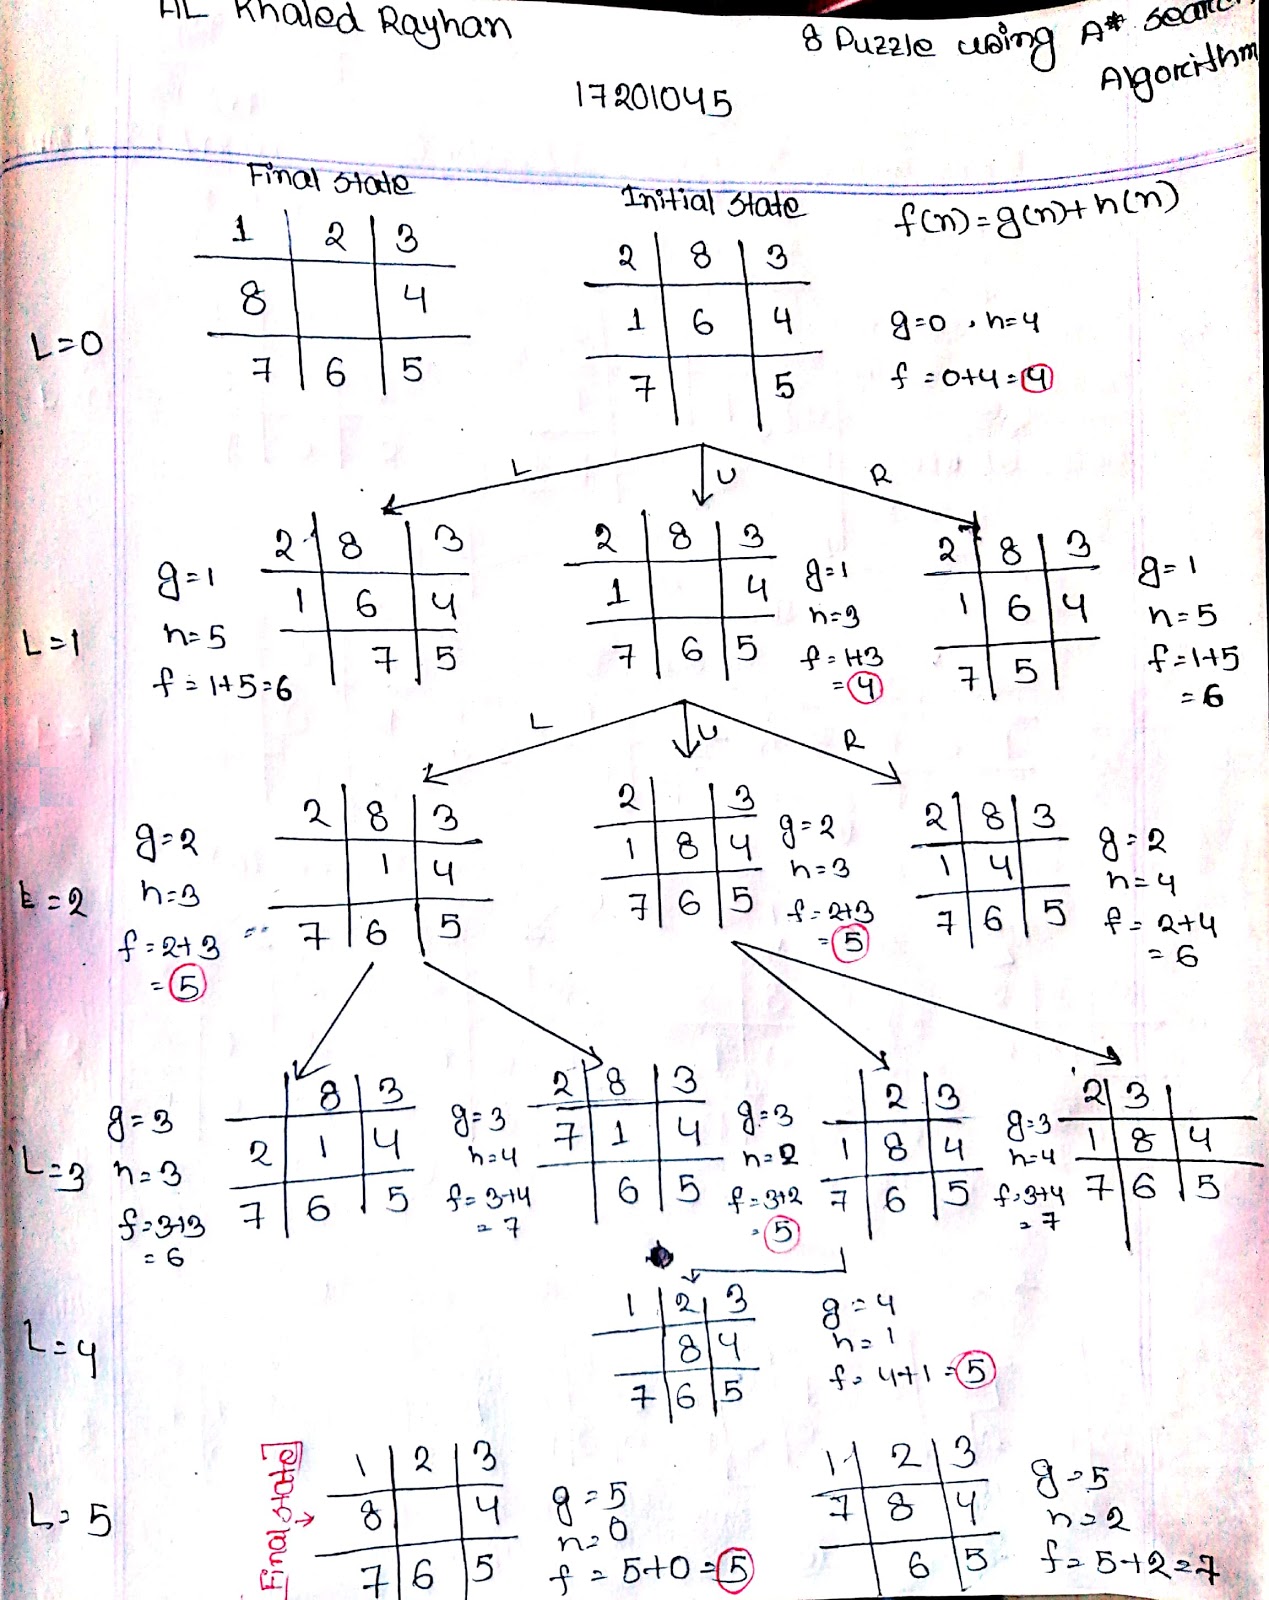 AL Khaled Rayhan
8 Puzzle using A* Search
Algorithm
17201045
Final state
1 2 3
8 4
7 6 5
Initial state
2 8 3
1 6 4
7 5
f(n)=g(n)+h(n)
g=0, h=4
f=0+4=4
L=0
L U R
L=1
g=1
h=5
f=1+5=6
2 8 3
1 6 4
7 5
2 8 3
1 4
7 6 5
g=1
h=3
f=1+3
=4
2 8 3
1 6 4
7 5
g=1
h=5
f=1+5
=6
L U R
L=2
g=2
h=3
f=2+3
=5
2 8 3
1 4
7 6 5
2 3
1 8 4
7 6 5
g=2
h=3
f=2+3
=5
2 8 3
1 4
7 6 5
g=2
h=4
f=2+4
=6
L=3
g=3
h=3
f=3+3
=6
8 3
2 1 4
7 6 5
g=3
h=4
f=3+4
=7
2 8 3
7 1 4
6 5
g=3
h=2
f=3+2
=5
2 3
1 8 4
7 6 5
g=3
h=4
f=3+4
=7
2 3
1 8 4
7 6 5
L=4
1 2 3
8 4
7 6 5
g=4
h=1
f=4+1=5
L=5
Final state
1 2 3
8 4
7 6 5
g=5
h=0
f=5+0=5
1 2 3
7 8 4
6 5
g=5
h=2
f=5+2=7